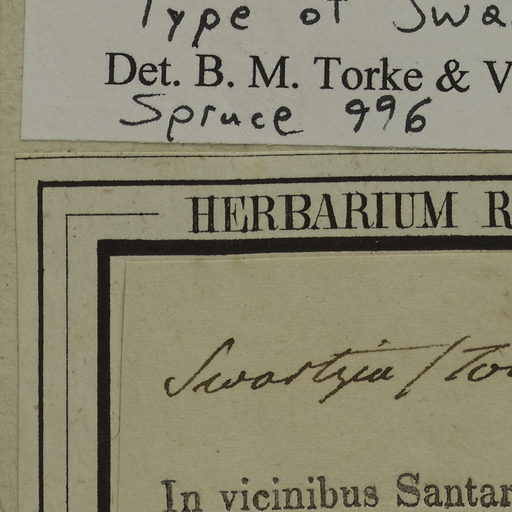 Type of Swa
Det. B. M. Torke & V
Spruce 996
HERBARIUM R
Swartzia
In vicinibus Santar